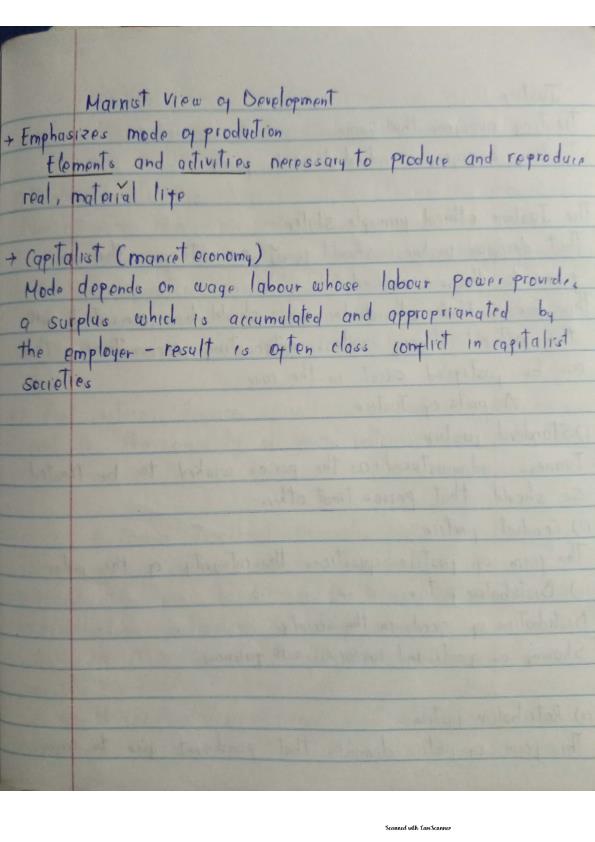 Marxist View of Development
→ Emphasizes mode of production
Elements and activities necessary to produce and reproduce
real, material life
→ Capitalist (market economy)
Mode depends on wage labour whose labour power provides
a surplus which is accumulated and appropriated by
the employer - result is often class conflict in capitalist
societies
Scanned with CamScanner